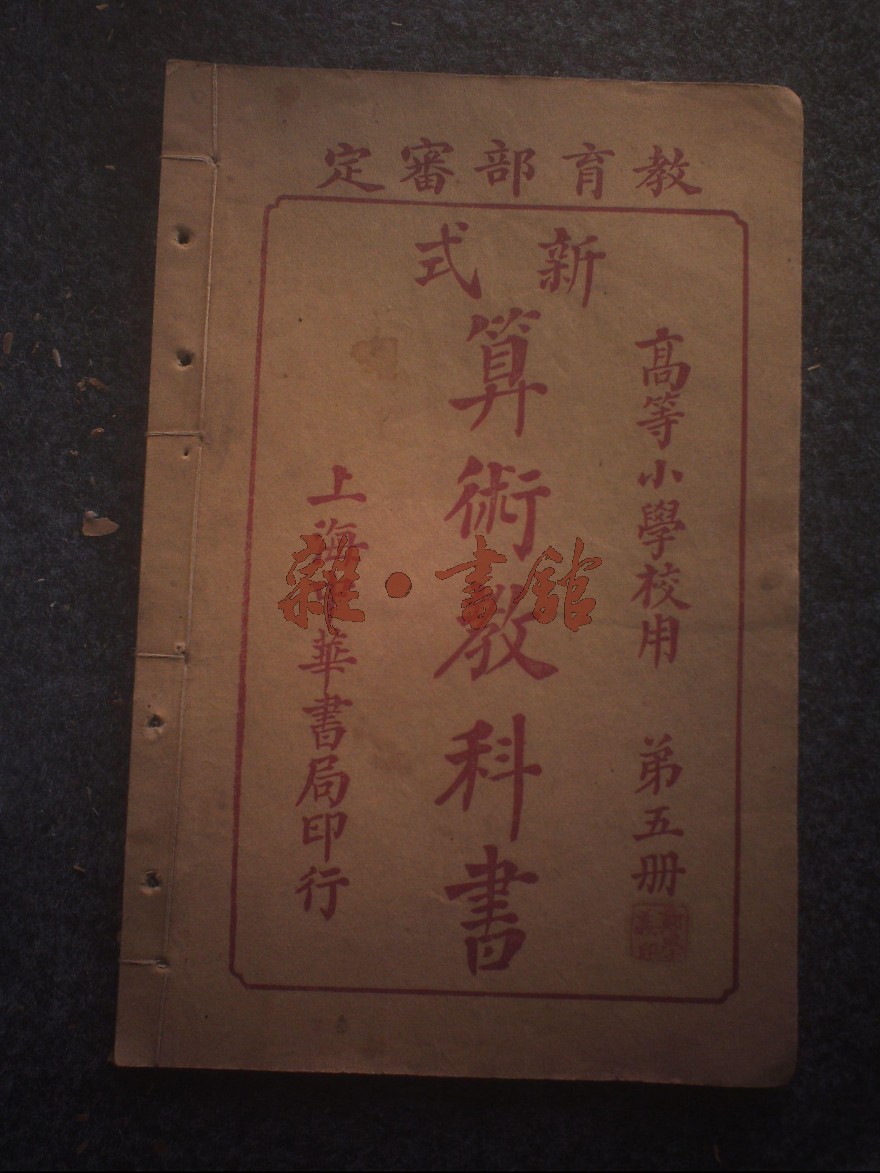 教育部審定
新式
算術教科書
高等小學校用 第五册
上海中華書局印行
雜·書館